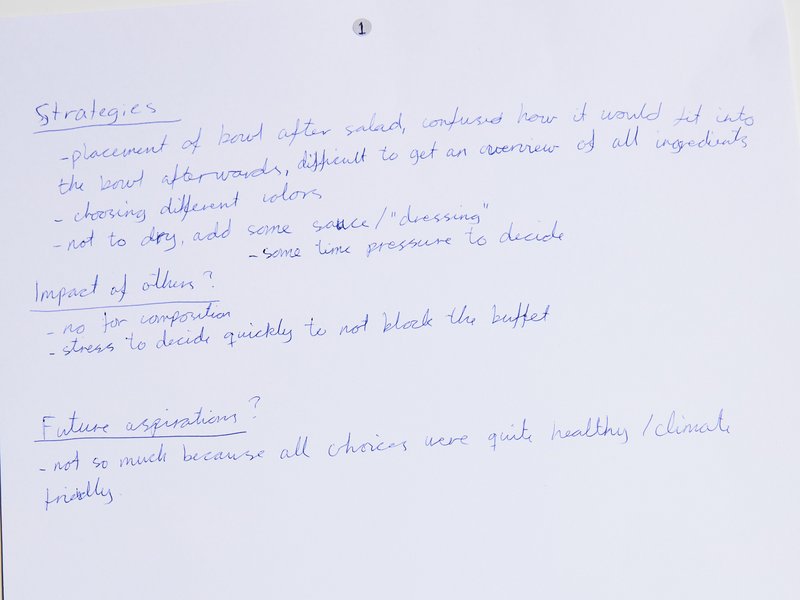 1
Strategies
- placement of bowl after salad, confused how it would fit into
the bowl afterwards, difficult to get an overview of all ingredients
- choosing different colors
- not to dry, add some sauce/"dressing"
- some time pressure to decide
Impact of others?
- no for composition
- stress to decide quickly to not block the buffet
Future aspirations?
- not so much because all choices were quite healthy/climate
friedly.